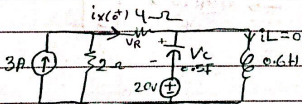 ix(0⁺) 4Ω
VR + iL=0
3A 2Ω - Vc 0.6H
0.5F
20V +